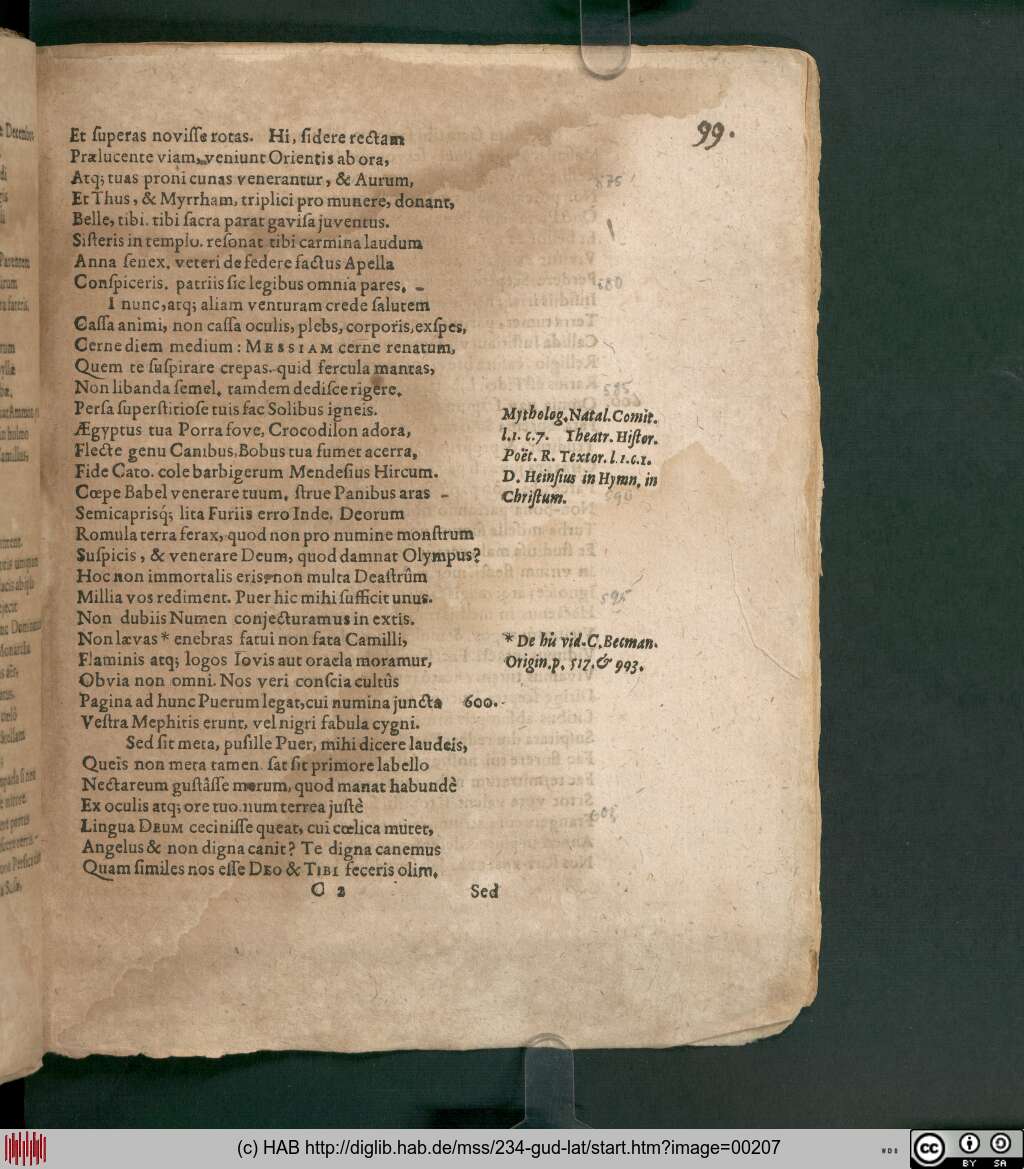 99.
Et superas novisse rotas. Hi, sidere rectam
Prælucente viam, veniunt Orientis ab ora,
Atq; tuas proni cunas venerantur, & Aurum,
Et Thus, & Myrrham, triplici pro munere, donant,
Belle, tibi. tibi sacra parat gavisa juventus.
Sisteris in templo. resonat tibi carmina laudum
Anna senex. veteri de federe factus Apella
Conspiceris. patriis sic legibus omnia pares.
I nunc, atq; aliam venturam crede salutem
Cassa animi, non cassa oculis, plebs, corporis, exspes,
Cerne diem medium: MESSIAM cerne renatum,
Quem te suspirare crepas. quid fercula mantas,
Non libanda semel, tamdem dedisce rigere.
Persa superstitiose tuis fac Solibus igneis.
Ægyptus tua Porra fove, Crocodilon adora,
Flecte genu Canibus, Bobus tua fumet acerra,
Fide Cato. cole barbigerum Mendesius Hircum.
Cœpe Babel venerare tuum. strue Panibus aras
Semicaprisq́; lita Furiis erro Inde. Deorum
Romula terra ferax, quod non pro numine monstrum
Suspicis, & venerare Deum, quod damnat Olympus?
Hoc non immortalis eris, non multa Deastrûm
Millia vos rediment. Puer hic mihi sufficit unus.
Non dubiis Numen conjecturamus in extis.
Non lævas * enebras fatui non fata Camilli,
Flaminis atq; logos Iovis aut oracla moramur,
Obvia non omni. Nos veri conscia cultûs
Pagina ad hunc Puerum legat, cui numina juncta 600.
Vestra Mephitis erunt, vel nigri fabula cygni.
Sed sit meta, pusille Puer, mihi dicere laudeis,
Queîs non meta tamen. sat sit primore labello
Nectareum gustâsse merum, quod manat habundè
Ex oculis atq; ore tuo. num terrea justè
Lingua DEUM cecinisse queat, cui cœlica mutet,
Angelus & non digna canit? Te digna canemus
Quam similes nos esse DEO & TIBI feceris olim.
C 2 Sed
Mytholog. Natal. Comit.
l. 1. c. 7. Theatr. Histor.
Poët. R. Textor. l. 1. c. 1.
D. Heinsius in Hymn. in
Christum.
* De his vid. C. Becman.
Origin. p. 517. & 993.
(c) HAB http://diglib.hab.de/mss/234-gud-lat/start.htm?image=00207
WDB
cc
BY SA